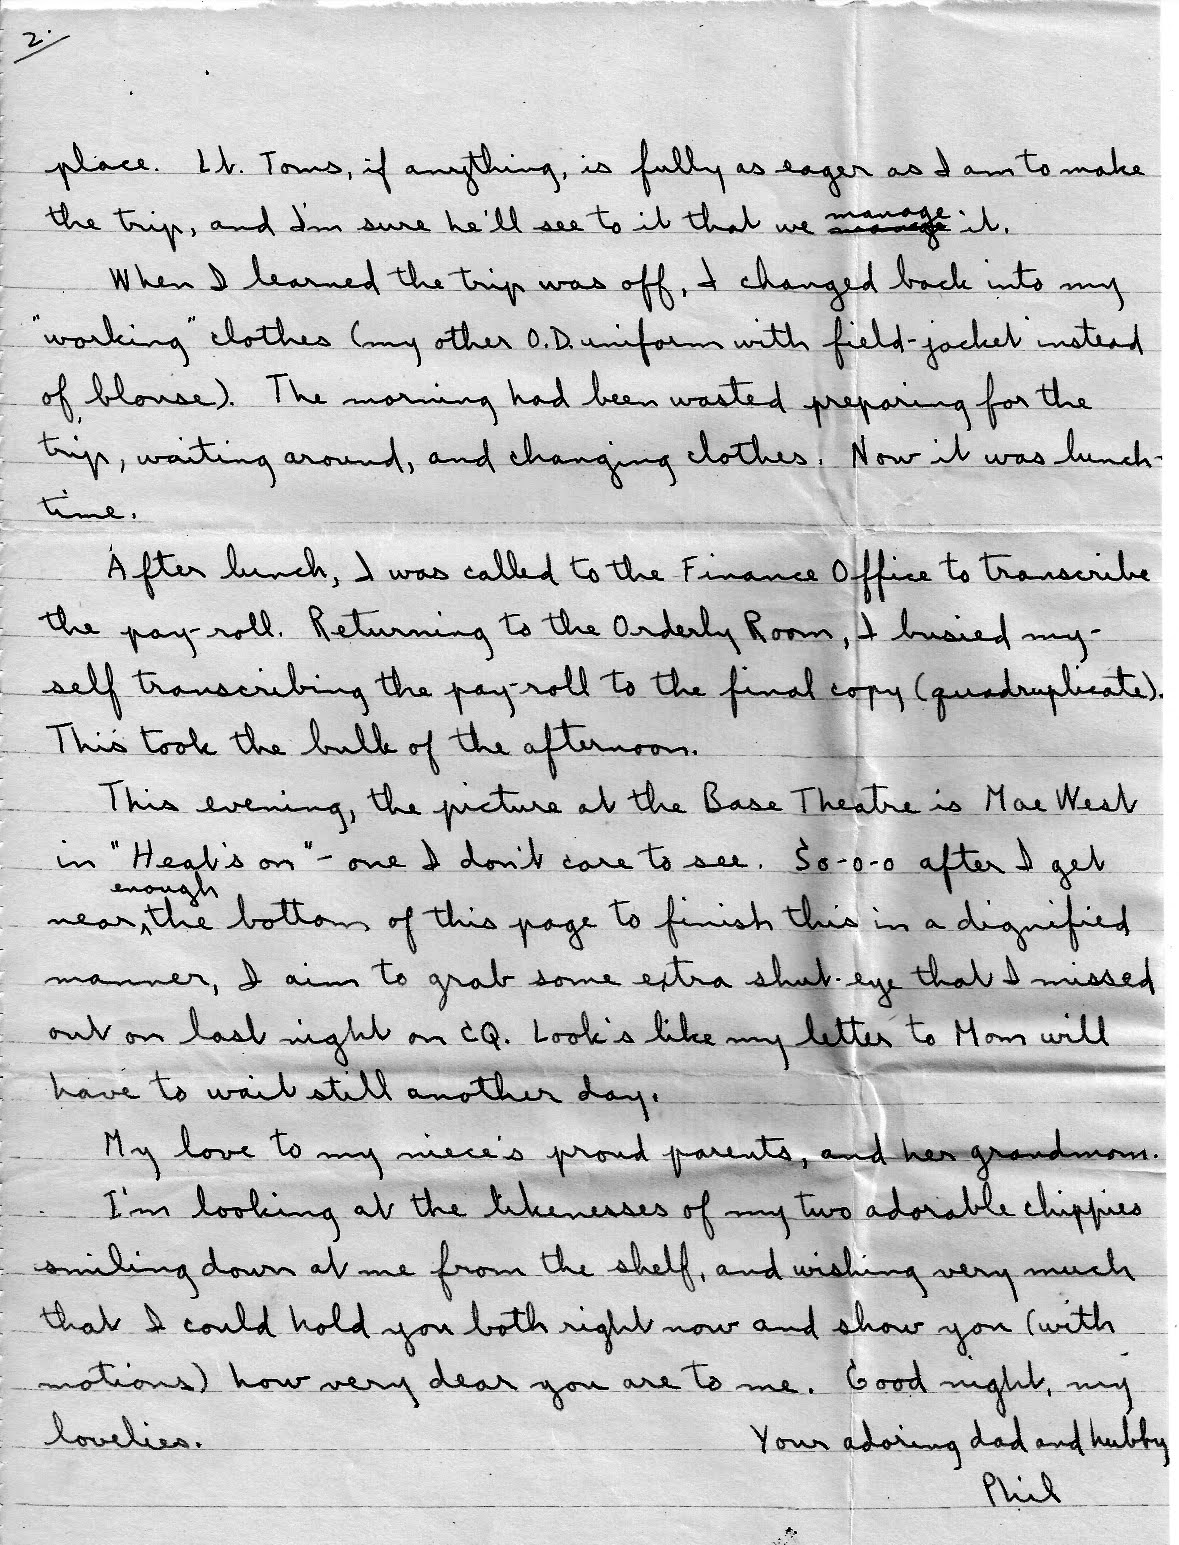 2.
place. Lt. Toms, if anything, is fully as eager as I am to make
the trip, and I'm sure he'll see to it that we manage it.
When I learned the trip was off, I changed back into my
"working" clothes (my other O.D. uniform with field-jacket instead
of blouse). The morning had been wasted preparing for the
trip, waiting around, and changing clothes. Now it was lunch-
time.
After lunch, I was called to the Finance Office to transcribe
the pay-roll. Returning to the Orderly Room, I busied my-
self transcribing the pay-roll to the final copy (quadruplicate).
This took the bulk of the afternoon.
This evening, the picture at the Base Theatre is Mae West
in "Heat's on" - one I don't care to see. So-o-o after I get
near enough the bottom of this page to finish this in a dignified
manner, I aim to grab some extra shut-eye that I missed
out on last night on CQ. Look's like my letter to Mom will
have to wait still another day.
My love to my niece's proud parents, and her grandmom.
I'm looking at the likenesses of my two adorable chippies
smiling down at me from the shelf, and wishing very much
that I could hold you both right now and show you (with
motions) how very dear you are to me. Good night, my
lovelies.
Your adoring dad and hubby
Phil